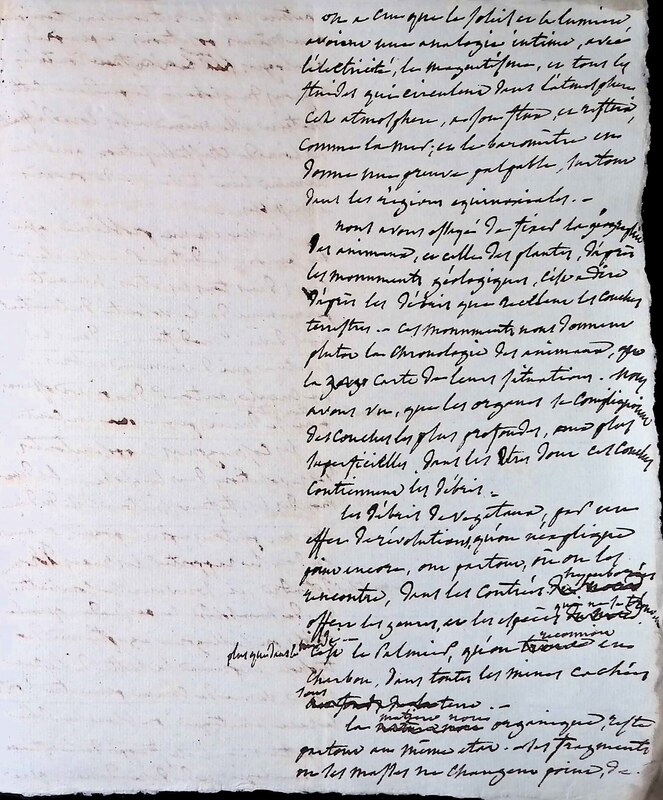 on a cru que le soleil et la lumiere
avoient une analogie intime, avec
l'électricité, le magnétisme, et tous les
fluides qui circulent dans l'atmosphere
cet atmosphere, a son flux, et reflux,
comme la mer; et le barométre en
donne une preuve palpable, surtout
dans les régions equinoxiales. -
nous avons essayé de fixer la géographie
des animaux, et celle des plantes, d'après
les monuments géologiques, c'est a dire
d'après les débris que recellent les couches
terrestres. - ces monuments nous donnent
plutot la chronologie des animaux, que
la carte de leurs situations. nous
avons vu, que les organes se compliquent
des couches les plus profondes, aux plus
superficielles, dans les êtres dont ces couches
contiennent les débris. -
les débris de vegetaux, par un
effet de révolutions, qu'on n'explique
point encore, ont partout, ou on les
hyperborées
rencontre, dans les contrées
offert les genres, et les espèces que
plus que dans la
c'est le Palmier, qu'on reconnoit en
charbon, dans toutes les mines cachées
sous
matiere
la organique, reste
partout au même etat. - les fragments
ou les masses ne changent point, de